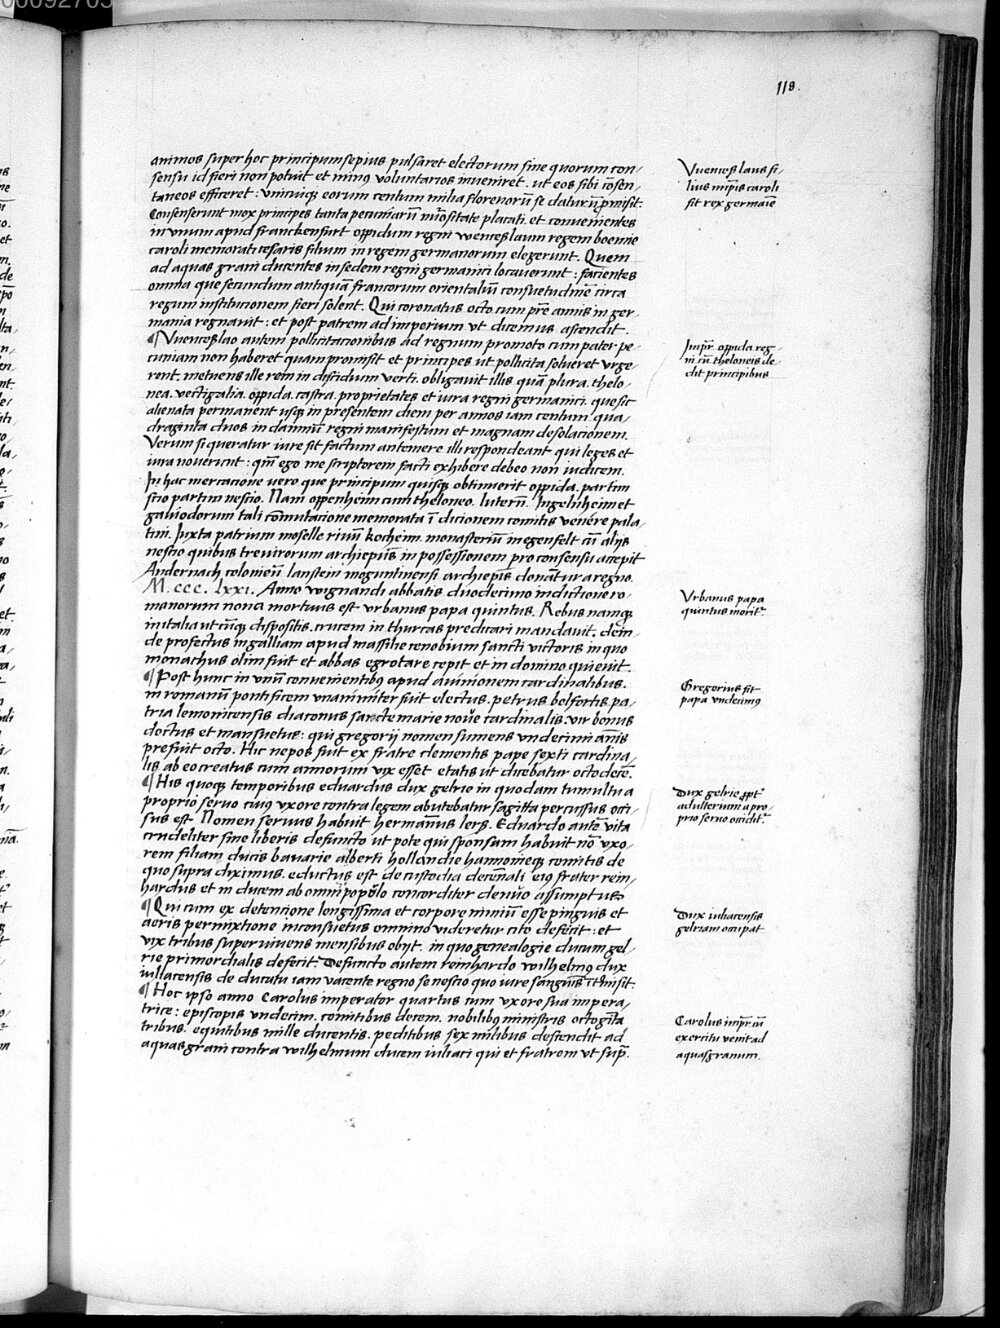 119.
animos super hoc principum sepius pulsaret electorum sine quorum con-
sensu id fieri non potuit et minus voluntarios inveniret. ut eos sibi cōsen-
taneos efficeret: unicuiq; eorum centum milia florenorū se daturū ꝓmisit.
Consenserunt mox principes tanta pecuniarū nūositate placati. et convenientes
in unum apud franckenfurt oppidum regni wenceslaum regem boemie
caroli memorati cesaris filium in regem germanorum elegerunt. Quem
ad aquas grani ducentes in sedem regni germanici locaverunt: facientes
omnia que secundum antiquā francorum orientaliū consuetudinē circa
regum institucionem fieri solent. Qui coronatus octo cum prē annis in ger-
mania regnavit: et post patrem ad imperium ut dicemus ascendit.
¶ Vuenceslao autem pollicitacionibus ad regnum promoto cum pater pe-
cuniam non haberet quam promisit et principes ut pollicita solveret urge-
rent. metuens ille rem in discidium verti. obligavit illis quā plura. thelo-
nea. vectigalia. oppida. castra. proprietates et iura regni germanici. que sic
alienata permanent usq; in presentem diem per annos iam centum qua-
draginta duos in damnū regni manifestum et magnam desolacionem.
Verum si queratur iure sit factum an temere illi respondeant qui leges et
iura noverunt: qm̄ ego me scriptorem facti exhibere debeo non iudicem.
In hac mercacione vero que principum quisq; obtinuerit oppida. partim
scio partim nescio. Nam oppenheim cum theloneo. luterū. Ingelnheim et
galviodorum tali cōmutacione memorata ī dicionem comitis venēre pala-
tini. Iuxta patrium moselle rivū kocheim. monasteriū megenfelt cū aliis
nescio quibus trevirorum archiepūs in possessionem pro consensu accepit
Andernach coloniēn lanstein moguntinensi archiepīs donātur a regno.
M. ccc. lxxi. Anno wignandi abbatis duodecimo indictione ro-
manorum nona mortuus est urbanus papa quintus. Rebus namq;
in italia utcūq; dispositis. crucem in thurcas predicari mandavit. dein-
de profectus in galliam apud massilie cenobium sancti victoris in quo
monachus olim fuit et abbas egrotare cepit et in domino quievit.
¶ Post hunc in unū convenientibq apud avinionem cardinalibus.
in romanū pontificem unanimiter fuit electus. petrus belfortis pa-
tria lemovicensis diaconus sancte marie novē cardinalis. vir bonus
doctus et mansuetus: qui gregorij nomen sumens undecimi annis
prefuit octo. Hic nepos fuit ex fratre clementis pape sexti cardina-
lis ab eo creatus cum annorum vix esset etatis ut dicebatur octodece.
¶ His quoq; temporibus eduardus dux gelrie in quodam tumultu a
proprio servo cuiq uxore contra legem abutebatur sagitta percussus occi-
sus est. Nomen servus habuit hermānus lers. Eduardo autē vita
crudeliter sine liberis defuncto ut pote qui sponsam habuit nō uxo-
rem filiam ducis bavarie alberti hollandie hannonieq; comitis de
quo supra diximus. eductus est de custodia decēnali eiq frater rein-
hardus et in ducem ab omni popūlo concorditer denuo assumptus
¶ Qui cum ex detencione longissima et corpore nimiū esse pinguis et
aeris permixtione inconsuetus omnino videretur cito defecit: et
vix tribus supervivens mensibus obijt. in quo genealogie ducum gel-
rie primordialis defecit. Defuncto autem reinhardo wilhelmq dux
iuliacensis de ducatu iam vacente regno se nescio quo iure sanguis ītmisit.
¶ Hoc ipso anno Carolus imperator quartus cum uxore sua impera-
trice: episcopis undecim. comitibus decem. nobilibq ministris octogīta
tribus. equitibus mille ducentis. peditibus sex milibus descendit ad
aquasgrani contra wilhelmum ducem iuliaci qui et fratrem ut sup̄.
Vuenceslaus fi-
lius impīs caroli
fit rex germaīe
Impr̄ oppida reg-
ni cū theloneis de-
dit principibus
Urbanus papa
quintus morit᷑
Gregorius fit
papa undecimq
Dux gelrie ꝓpt᷑
adulterium a pro-
prio servo occidit᷑
Dux iuliacensis
gelriam occupat
Carolus impr̄ cū
exercitu venit ad
aquasgranum.